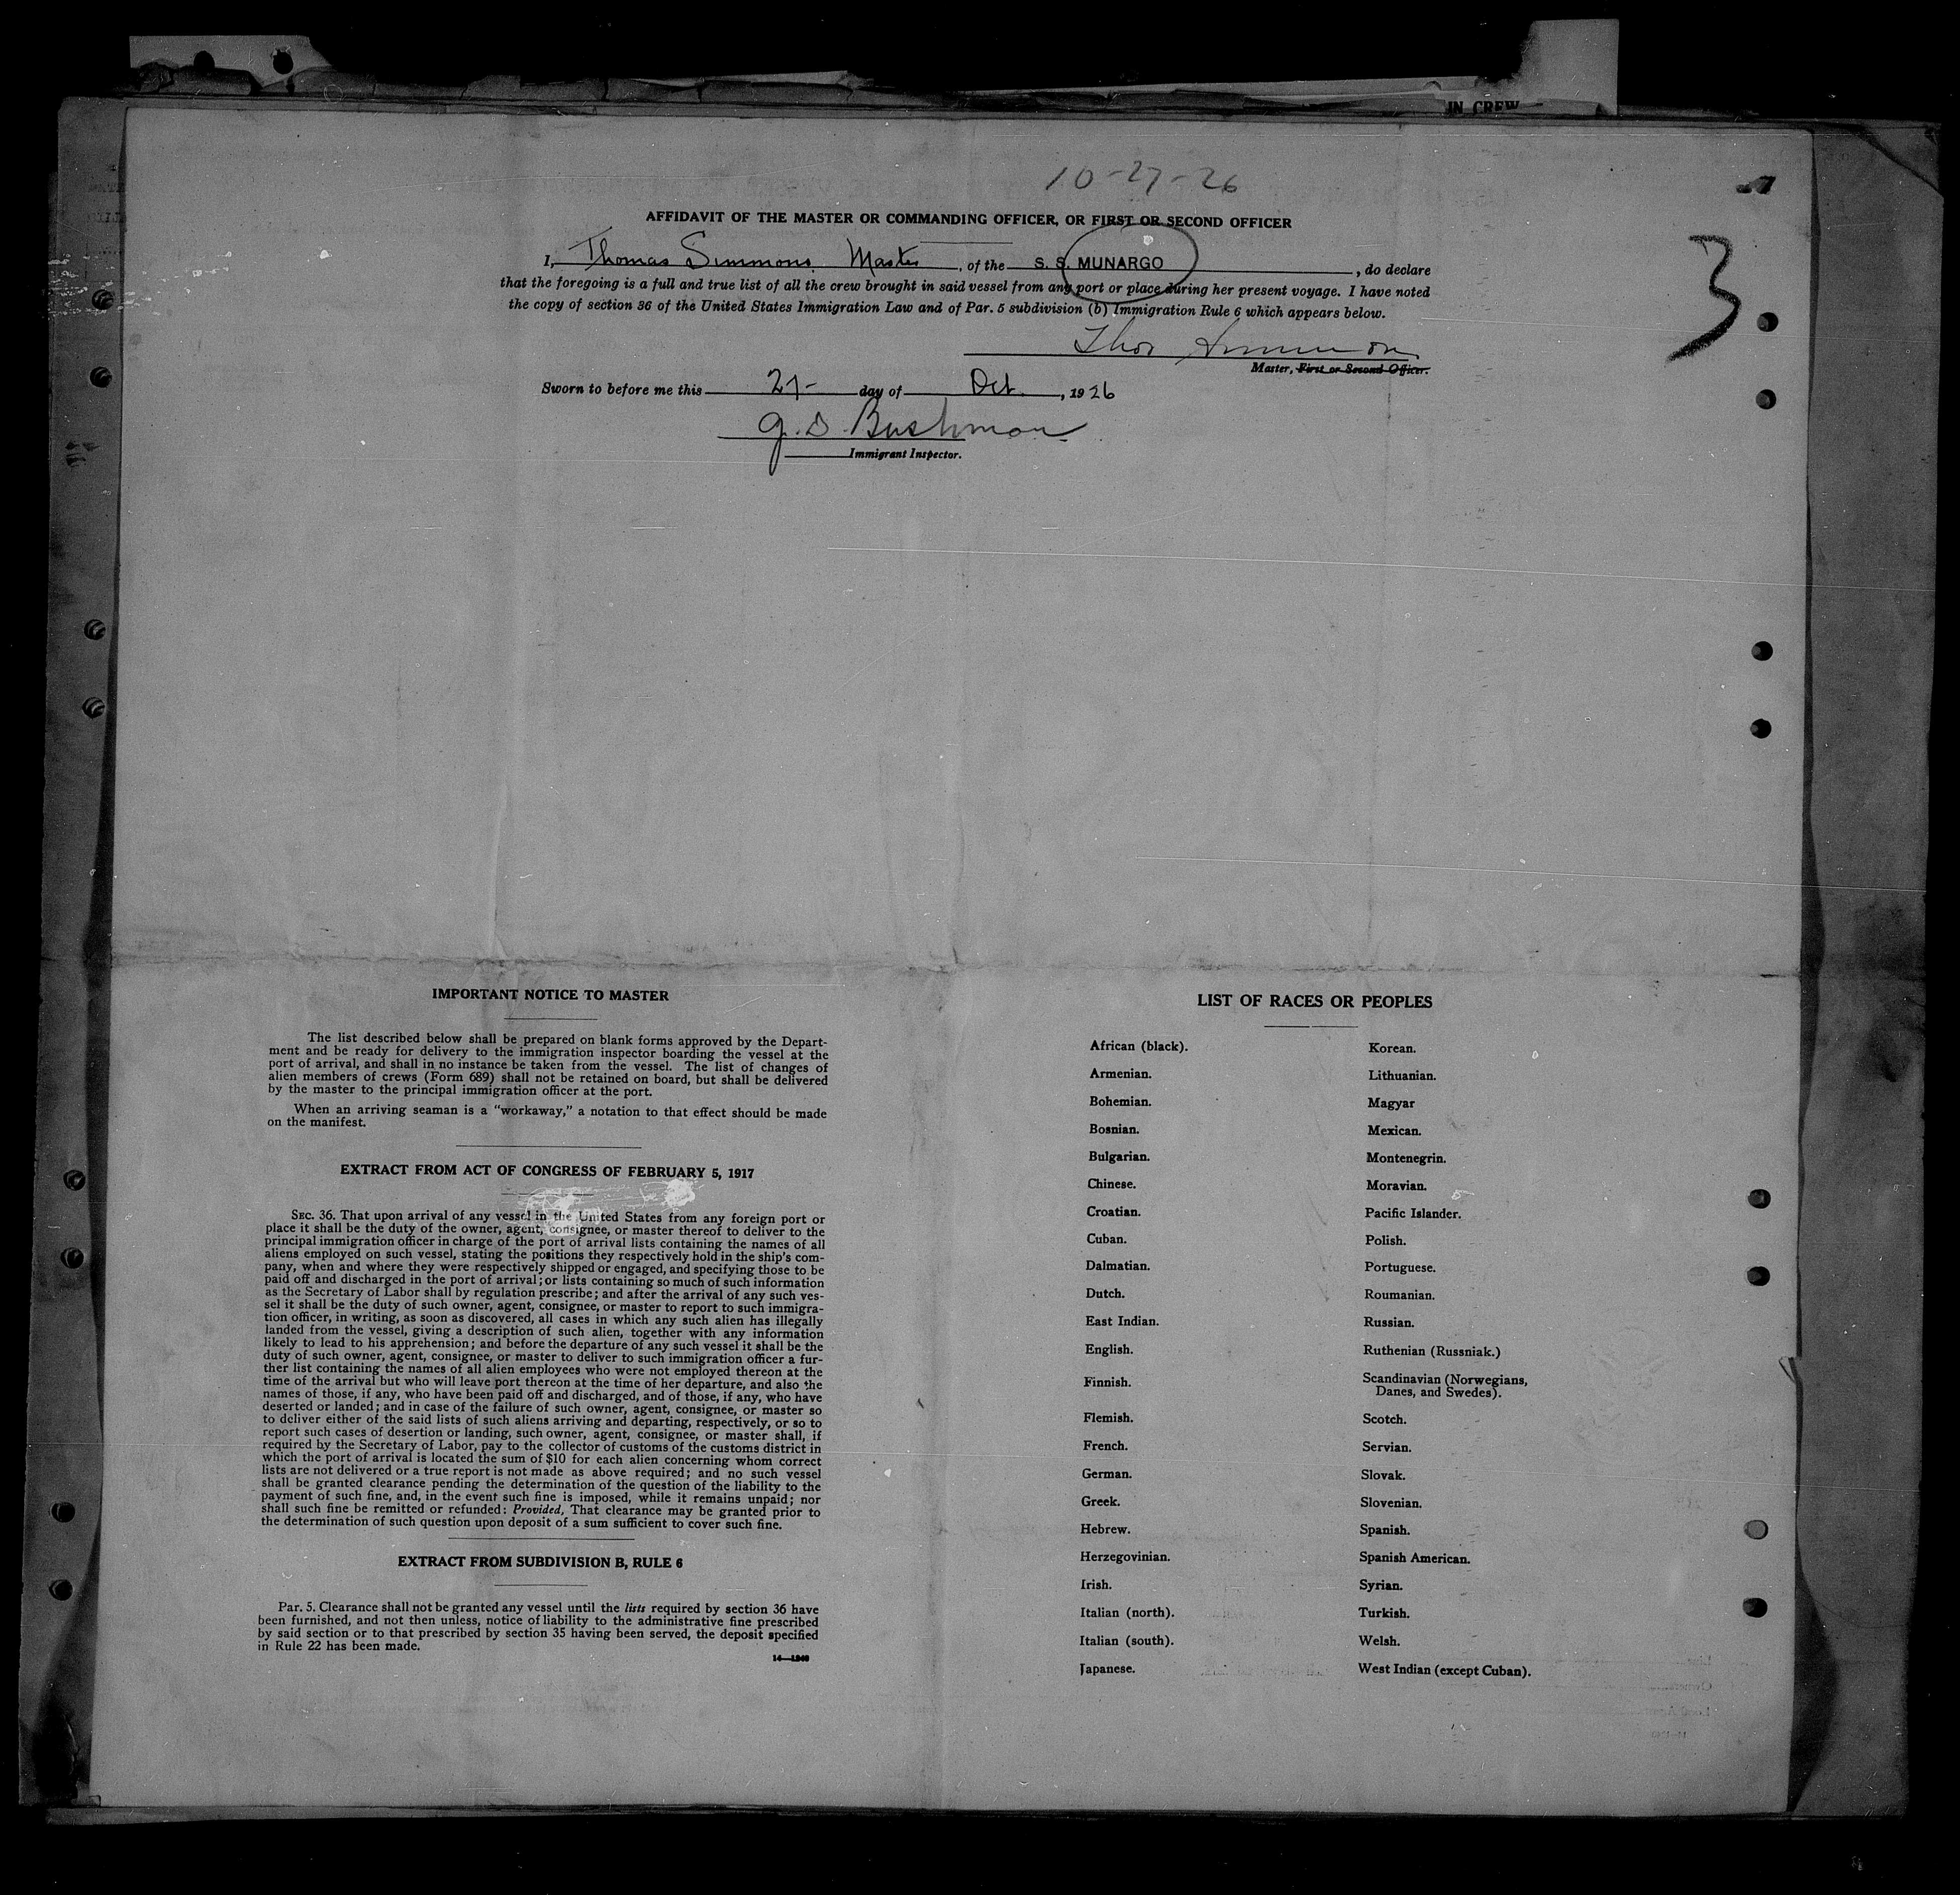 IN CREW
10-27-26
7
AFFIDAVIT OF THE MASTER OR COMMANDING OFFICER, OR FIRST OR SECOND OFFICER
3
I, Thomas Simmons Master, of the S. S. MUNARGO, do declare
that the foregoing is a full and true list of all the crew brought in said vessel from any port or place during her present voyage. I have noted
the copy of section 36 of the United States Immigration Law and of Par. 5 subdivision (b) Immigration Rule 6 which appears below.
Thos Simmons
Master, First or Second Officer.
Sworn to before me this 27- day of Oct, 1926
G. D. Bushman
Immigrant Inspector.
IMPORTANT NOTICE TO MASTER
The list described below shall be prepared on blank forms approved by the Depart-
ment and be ready for delivery to the immigration inspector boarding the vessel at the
port of arrival, and shall in no instance be taken from the vessel. The list of changes of
alien members of crews (Form 689) shall not be retained on board, but shall be delivered
by the master to the principal immigration officer at the port.
When an arriving seaman is a "workaway," a notation to that effect should be made
on the manifest.
EXTRACT FROM ACT OF CONGRESS OF FEBRUARY 5, 1917
SEC. 36. That upon arrival of any vessel in the United States from any foreign port or
place it shall be the duty of the owner, agent, consignee, or master thereof to deliver to the
principal immigration officer in charge of the port of arrival lists containing the names of all
aliens employed on such vessel, stating the positions they respectively hold in the ship's com-
pany, when and where they were respectively shipped or engaged, and specifying those to be
paid off and discharged in the port of arrival; or lists containing so much of such information
as the Secretary of Labor shall by regulation prescribe; and after the arrival of any such ves-
sel it shall be the duty of such owner, agent, consignee, or master to report to such immigra-
tion officer, in writing, as soon as discovered, all cases in which any such alien has illegally
landed from the vessel, giving a description of such alien, together with any information
likely to lead to his apprehension; and before the departure of any such vessel it shall be the
duty of such owner, agent, consignee, or master to deliver to such immigration officer a fur-
ther list containing the names of all alien employees who were not employed thereon at the
time of the arrival but who will leave port thereon at the time of her departure, and also the
names of those, if any, who have been paid off and discharged, and of those, if any, who have
deserted or landed; and in case of the failure of such owner, agent, consignee, or master so
to deliver either of the said lists of such aliens arriving and departing, respectively, or so to
report such cases of desertion or landing, such owner, agent, consignee, or master shall, if
required by the Secretary of Labor, pay to the collector of customs of the customs district in
which the port of arrival is located the sum of $10 for each alien concerning whom correct
lists are not delivered or a true report is not made as above required; and no such vessel
shall be granted clearance pending the determination of the question of the liability to the
payment of such fine, and, in the event such fine is imposed, while it remains unpaid; nor
shall such fine be remitted or refunded: Provided, That clearance may be granted prior to
the determination of such question upon deposit of a sum sufficient to cover such fine.
EXTRACT FROM SUBDIVISION B, RULE 6
Par. 5. Clearance shall not be granted any vessel until the lists required by section 36 have
been furnished, and not then unless, notice of liability to the administrative fine prescribed
by said section or to that prescribed by section 35 having been served, the deposit specified
in Rule 22 has been made.
LIST OF RACES OR PEOPLES
African (black).
Armenian.
Bohemian.
Bosnian.
Bulgarian.
Chinese.
Croatian.
Cuban.
Dalmatian.
Dutch.
East Indian.
English.
Finnish.
Flemish.
French.
German.
Greek.
Hebrew.
Herzegovinian.
Irish.
Italian (north).
Italian (south).
Japanese.
Korean.
Lithuanian.
Magyar
Mexican.
Montenegrin.
Moravian.
Pacific Islander.
Polish.
Portuguese.
Roumanian.
Russian.
Ruthenian (Russniak.)
Scandinavian (Norwegians,
Danes, and Swedes).
Scotch.
Servian.
Slovak.
Slovenian.
Spanish.
Spanish American.
Syrian.
Turkish.
Welsh.
West Indian (except Cuban).